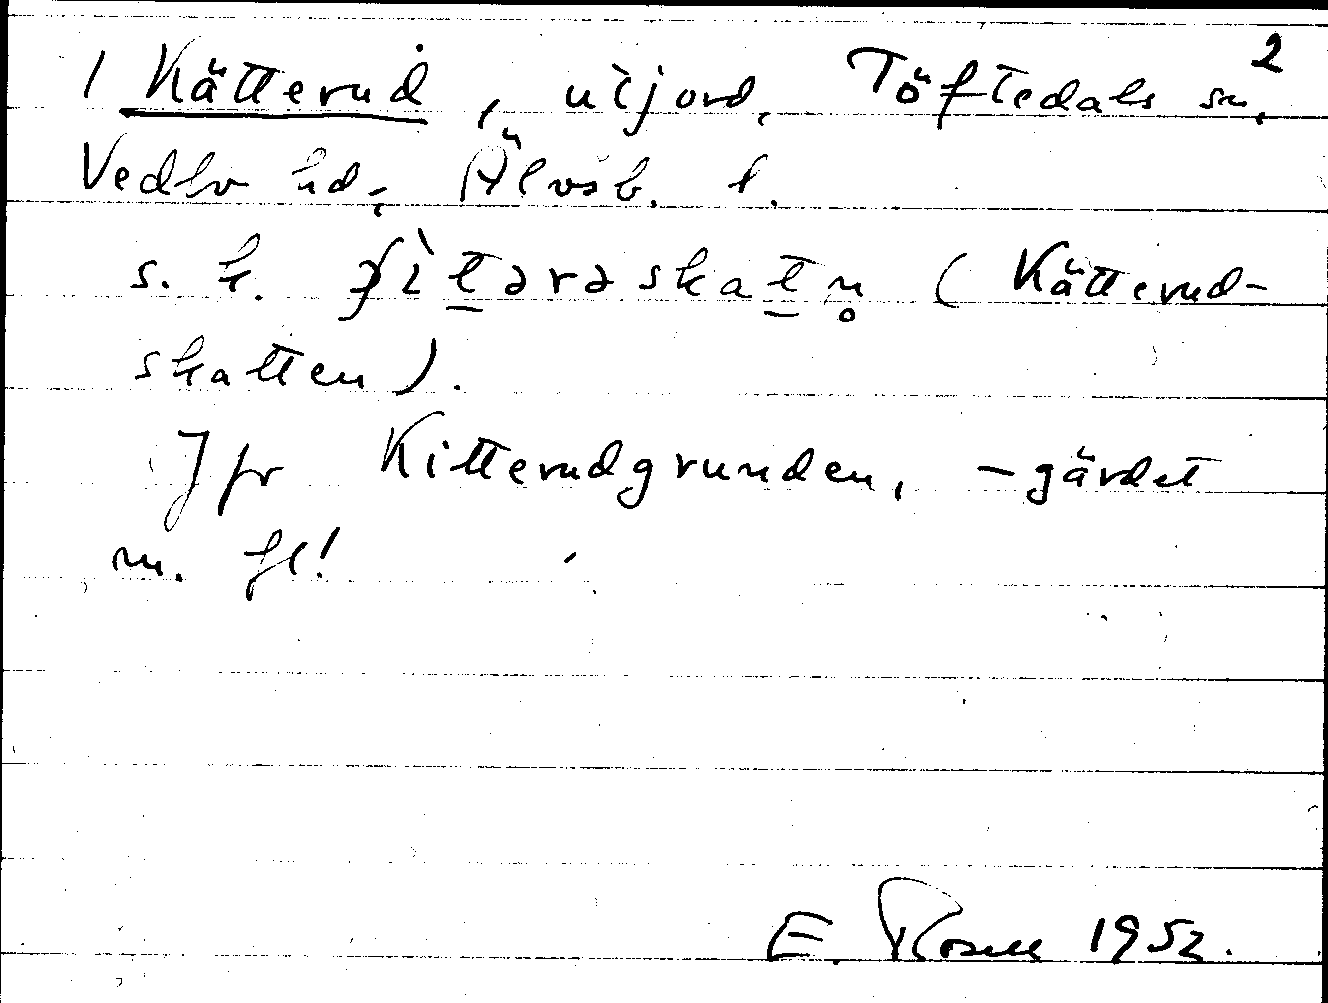 2
/ Kätterud, utjord, Töftedals sn,
Vedbo hd, Älvsb. l.
s. k. t̲əraskat̲n̥ (Kätterud-
skatten).
Jfr Kitterudgrunden, -gärdet
m. fl!
E. Rosell 1952.